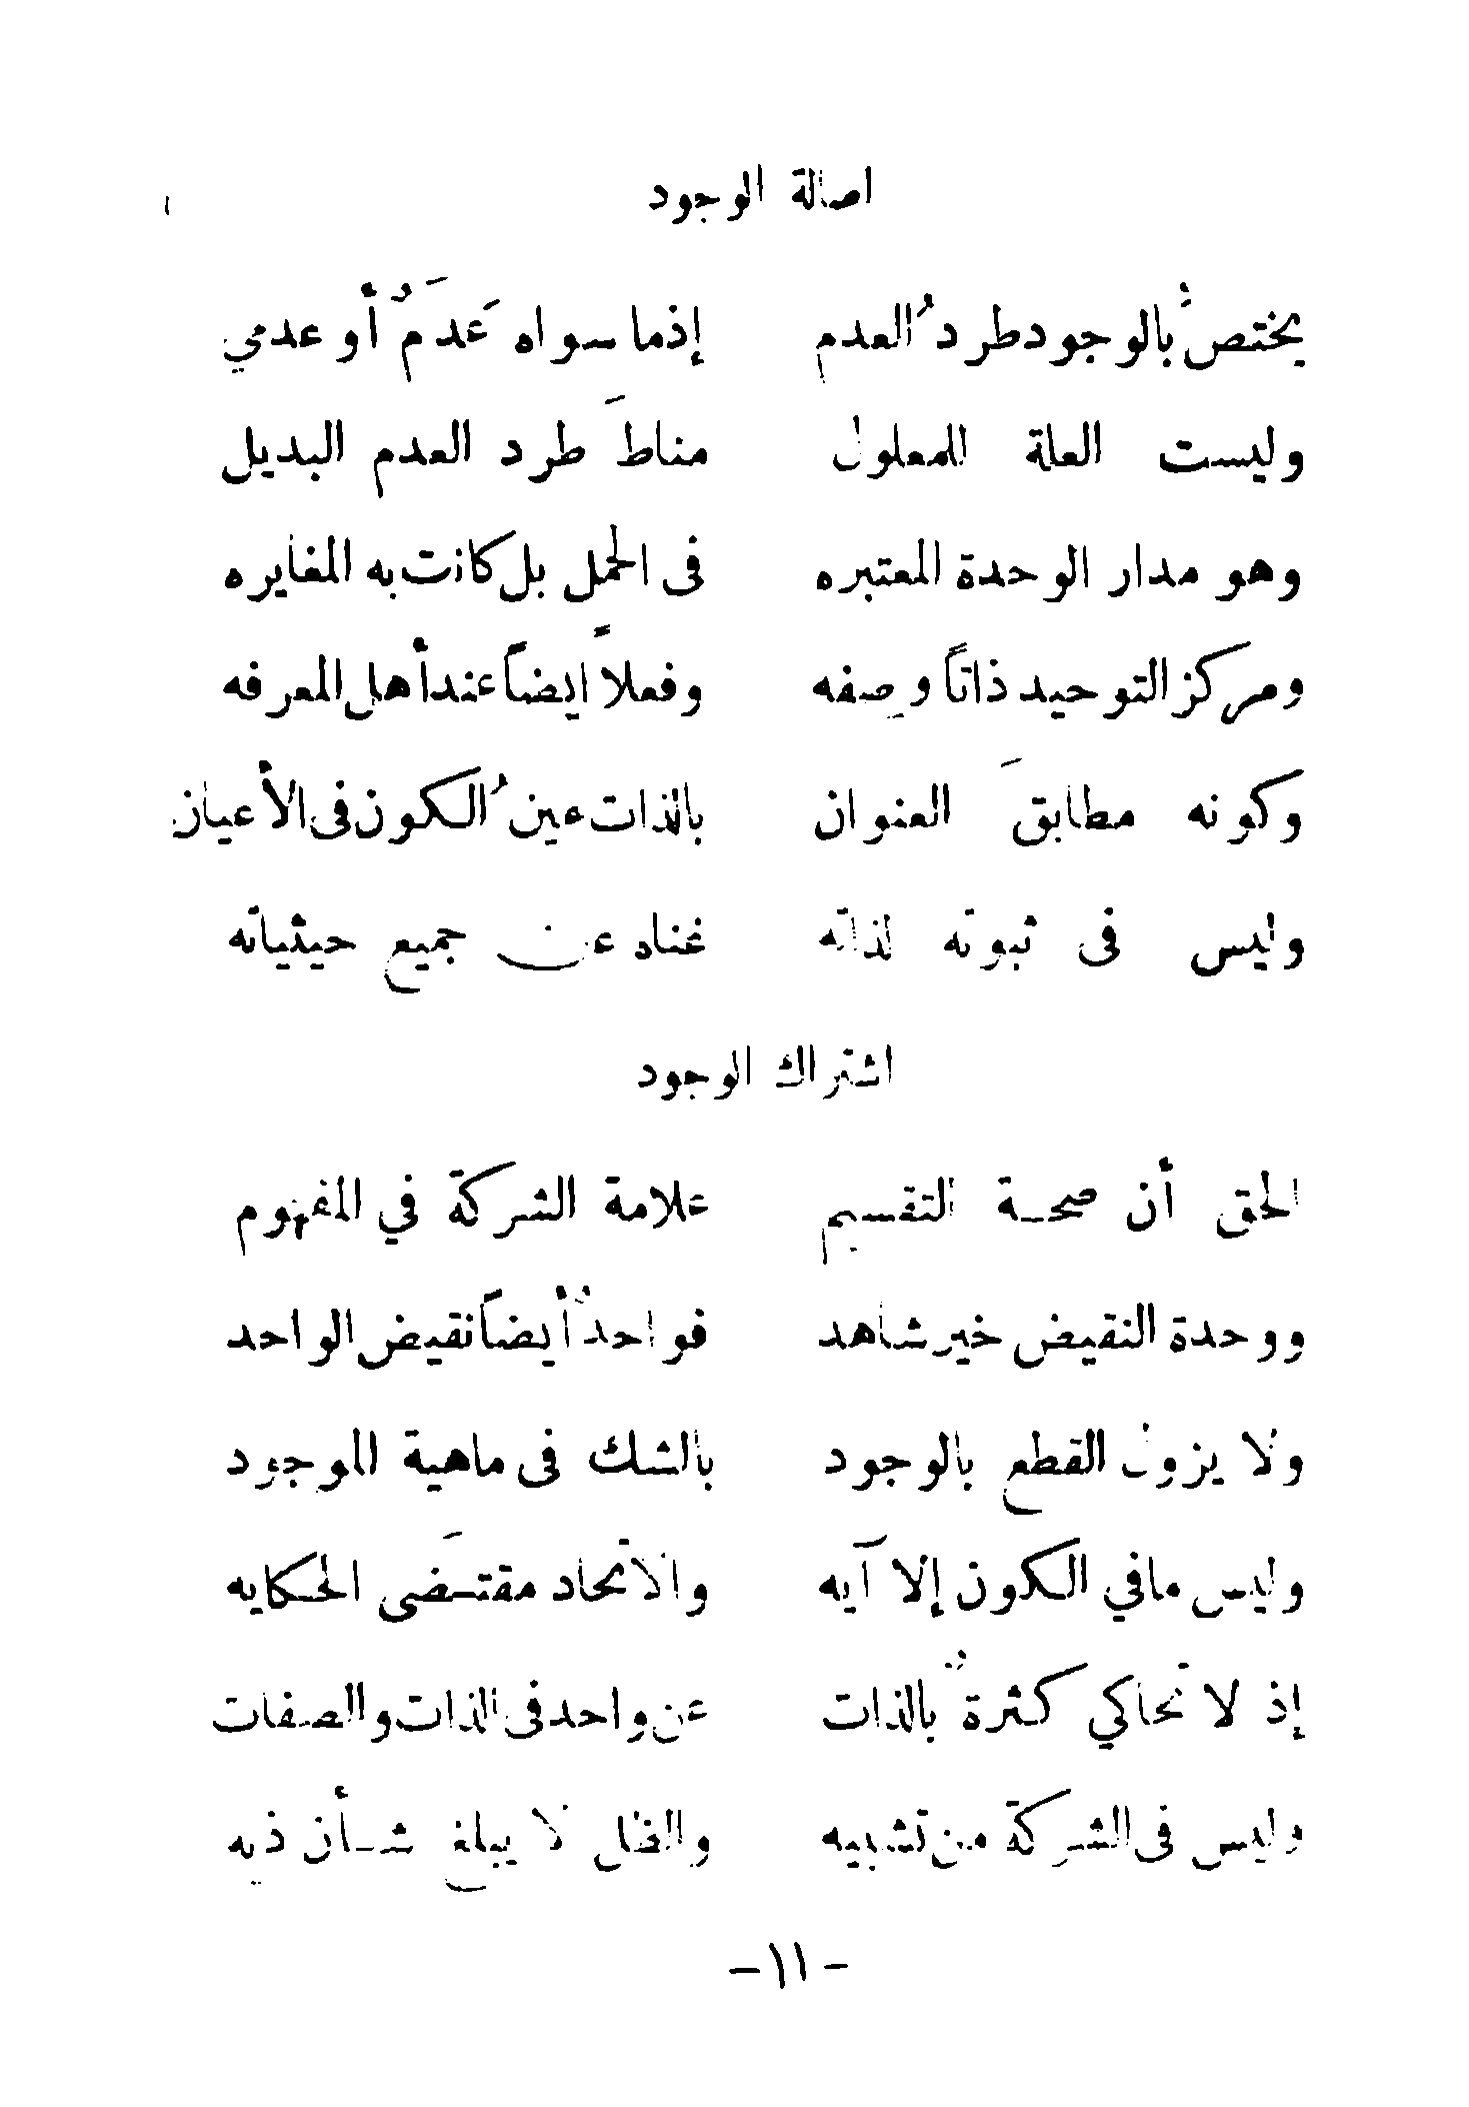 اصالة الوجود
يختصُّ بالوجود طردُ العدم إذ ما سواه عَدَمٌ أو عدمي
وليست العلة للمعلول مناطَ طرد العدم البديل
وهو مدار الوحدة المعتبره فى الحمل بل كانت به المغايره
ومركز التوحيد ذاتاً وصفه وفعلاً ايضاً عند أهل المعرفه
وكونه مطابقَ العنوان بالذات عينُ الكون فى الأعيان
وليس فى ثبوته لذاته غناه عن جميع حيثياته
اشتراك الوجود
الحق أن صحة التقسيم علامة الشركة في المفهوم
ووحدة النقيض خير شاهد فواحدٌ أيضاً نقيض الواحد
ولا يزول القطع بالوجود بالشك فى ماهية الموجود
وليس مافي الكون إلا آيه والاتحاد مقتَضى الحكايه
إذ لا تحاكي كثرةٌ بالذات عن واحد فى الذات والصفات
وليس فى الشركة من تشبيه والظل لا يبلغ شأن ذيه
- ١١ -